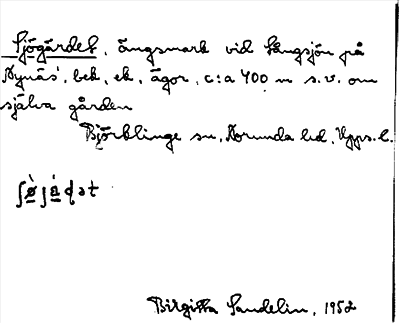 Sjögärdet, ängsmark vid Långsjön på
Nynäs', bek. ek. ägor, c:a 400 m s.v. om
själva gården
Björklinge sn, Norunda hd, Upps. l.
ʃø̀jáɖət
Birgitta Sandelin, 1952